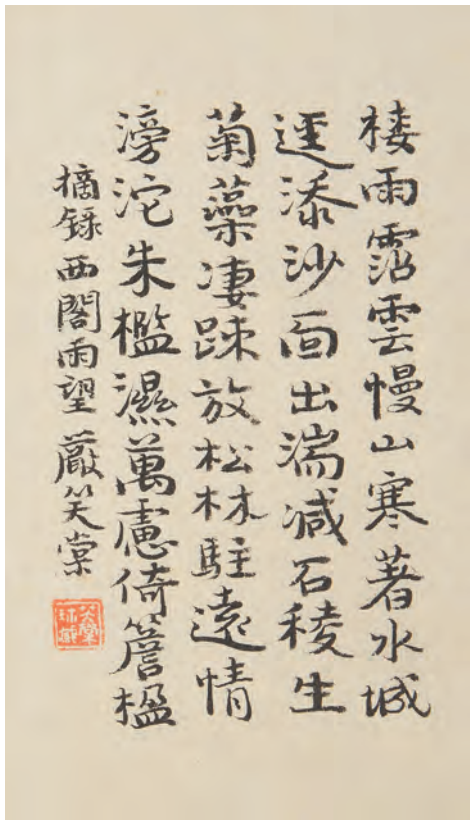 樓雨霑雲慢山寒著水城
逕添沙面出湍減石稜生
菊蘂凄疎放松林駐遠情
滂沱朱檻濕萬慮倚簷楹
摘錄西閣雨望 嚴笑棠